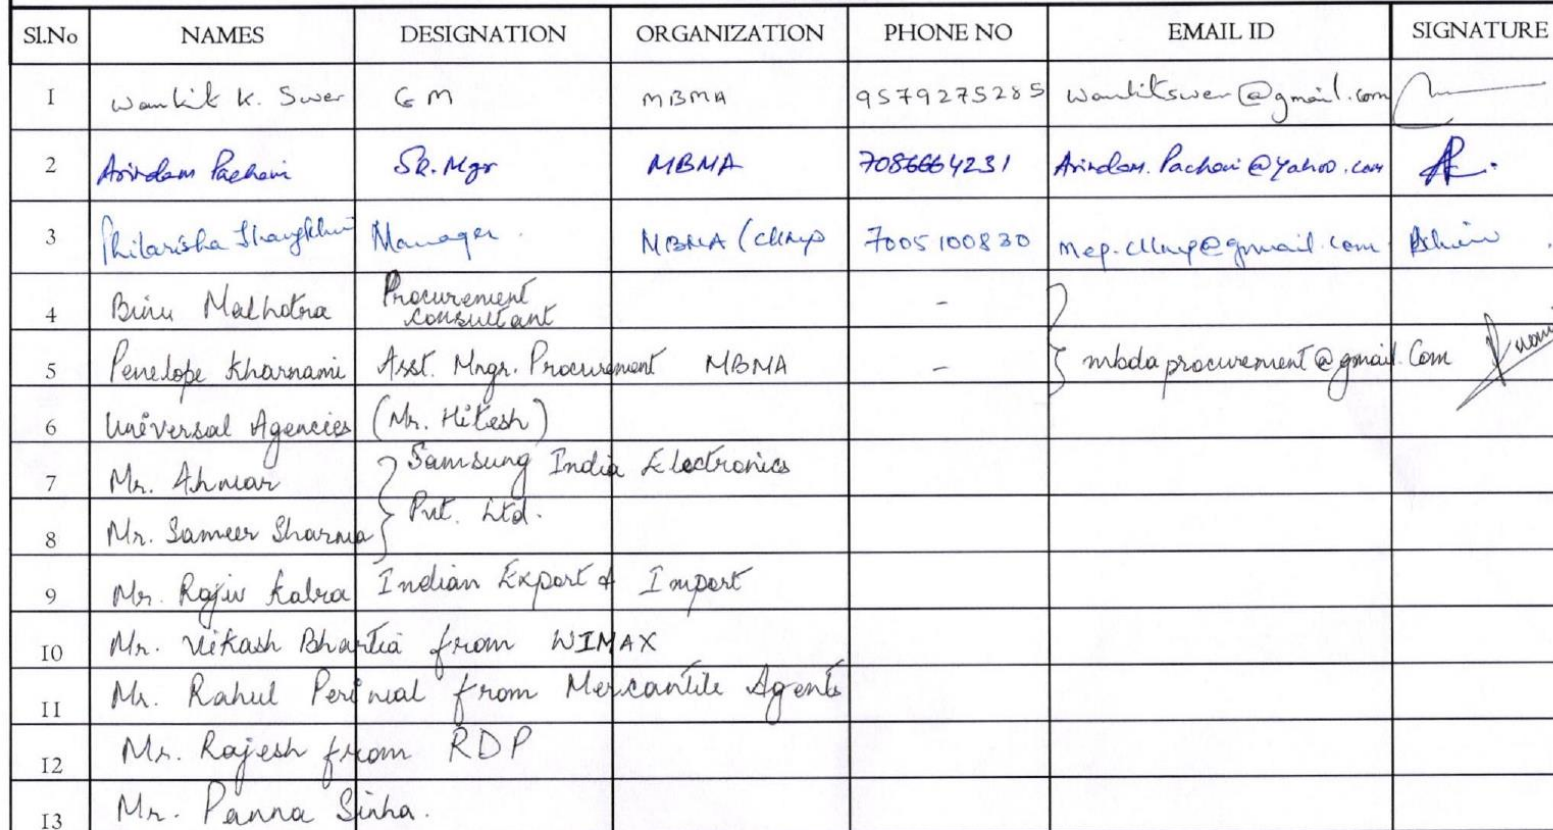 Sl.No NAMES DESIGNATION ORGANIZATION PHONE NO EMAIL ID SIGNATURE
1 Wankit K. Swer GM MBMA 9579275285 wankitswer@gmail.com
2 Arindam Pachani Sr. Mgr MBMA 7086664231 Arindam.Pachani@yahoo.com
3 Manager. MBMA 7005100830
4 Binu Malhotra Procurement consultant -
5 Penelope Kharnami Asst. Mngr. Procurement MBMA - mbdaprocurement@gmail.Com
6 Universal Agencies (Mr. Hitesh)
7 Mr. Samsung India Electronics
8 Mr. Sameer Sharma Pvt. Ltd.
9 Mr. Rajiv Kalra Indian Export & Import
10 Mr. Vikash Bhartia from WIMAX
11 Mr. Rahul from Mercantile Agents
12 Mr. Rajesh from RDP
13 Mr. Panna Sinha.